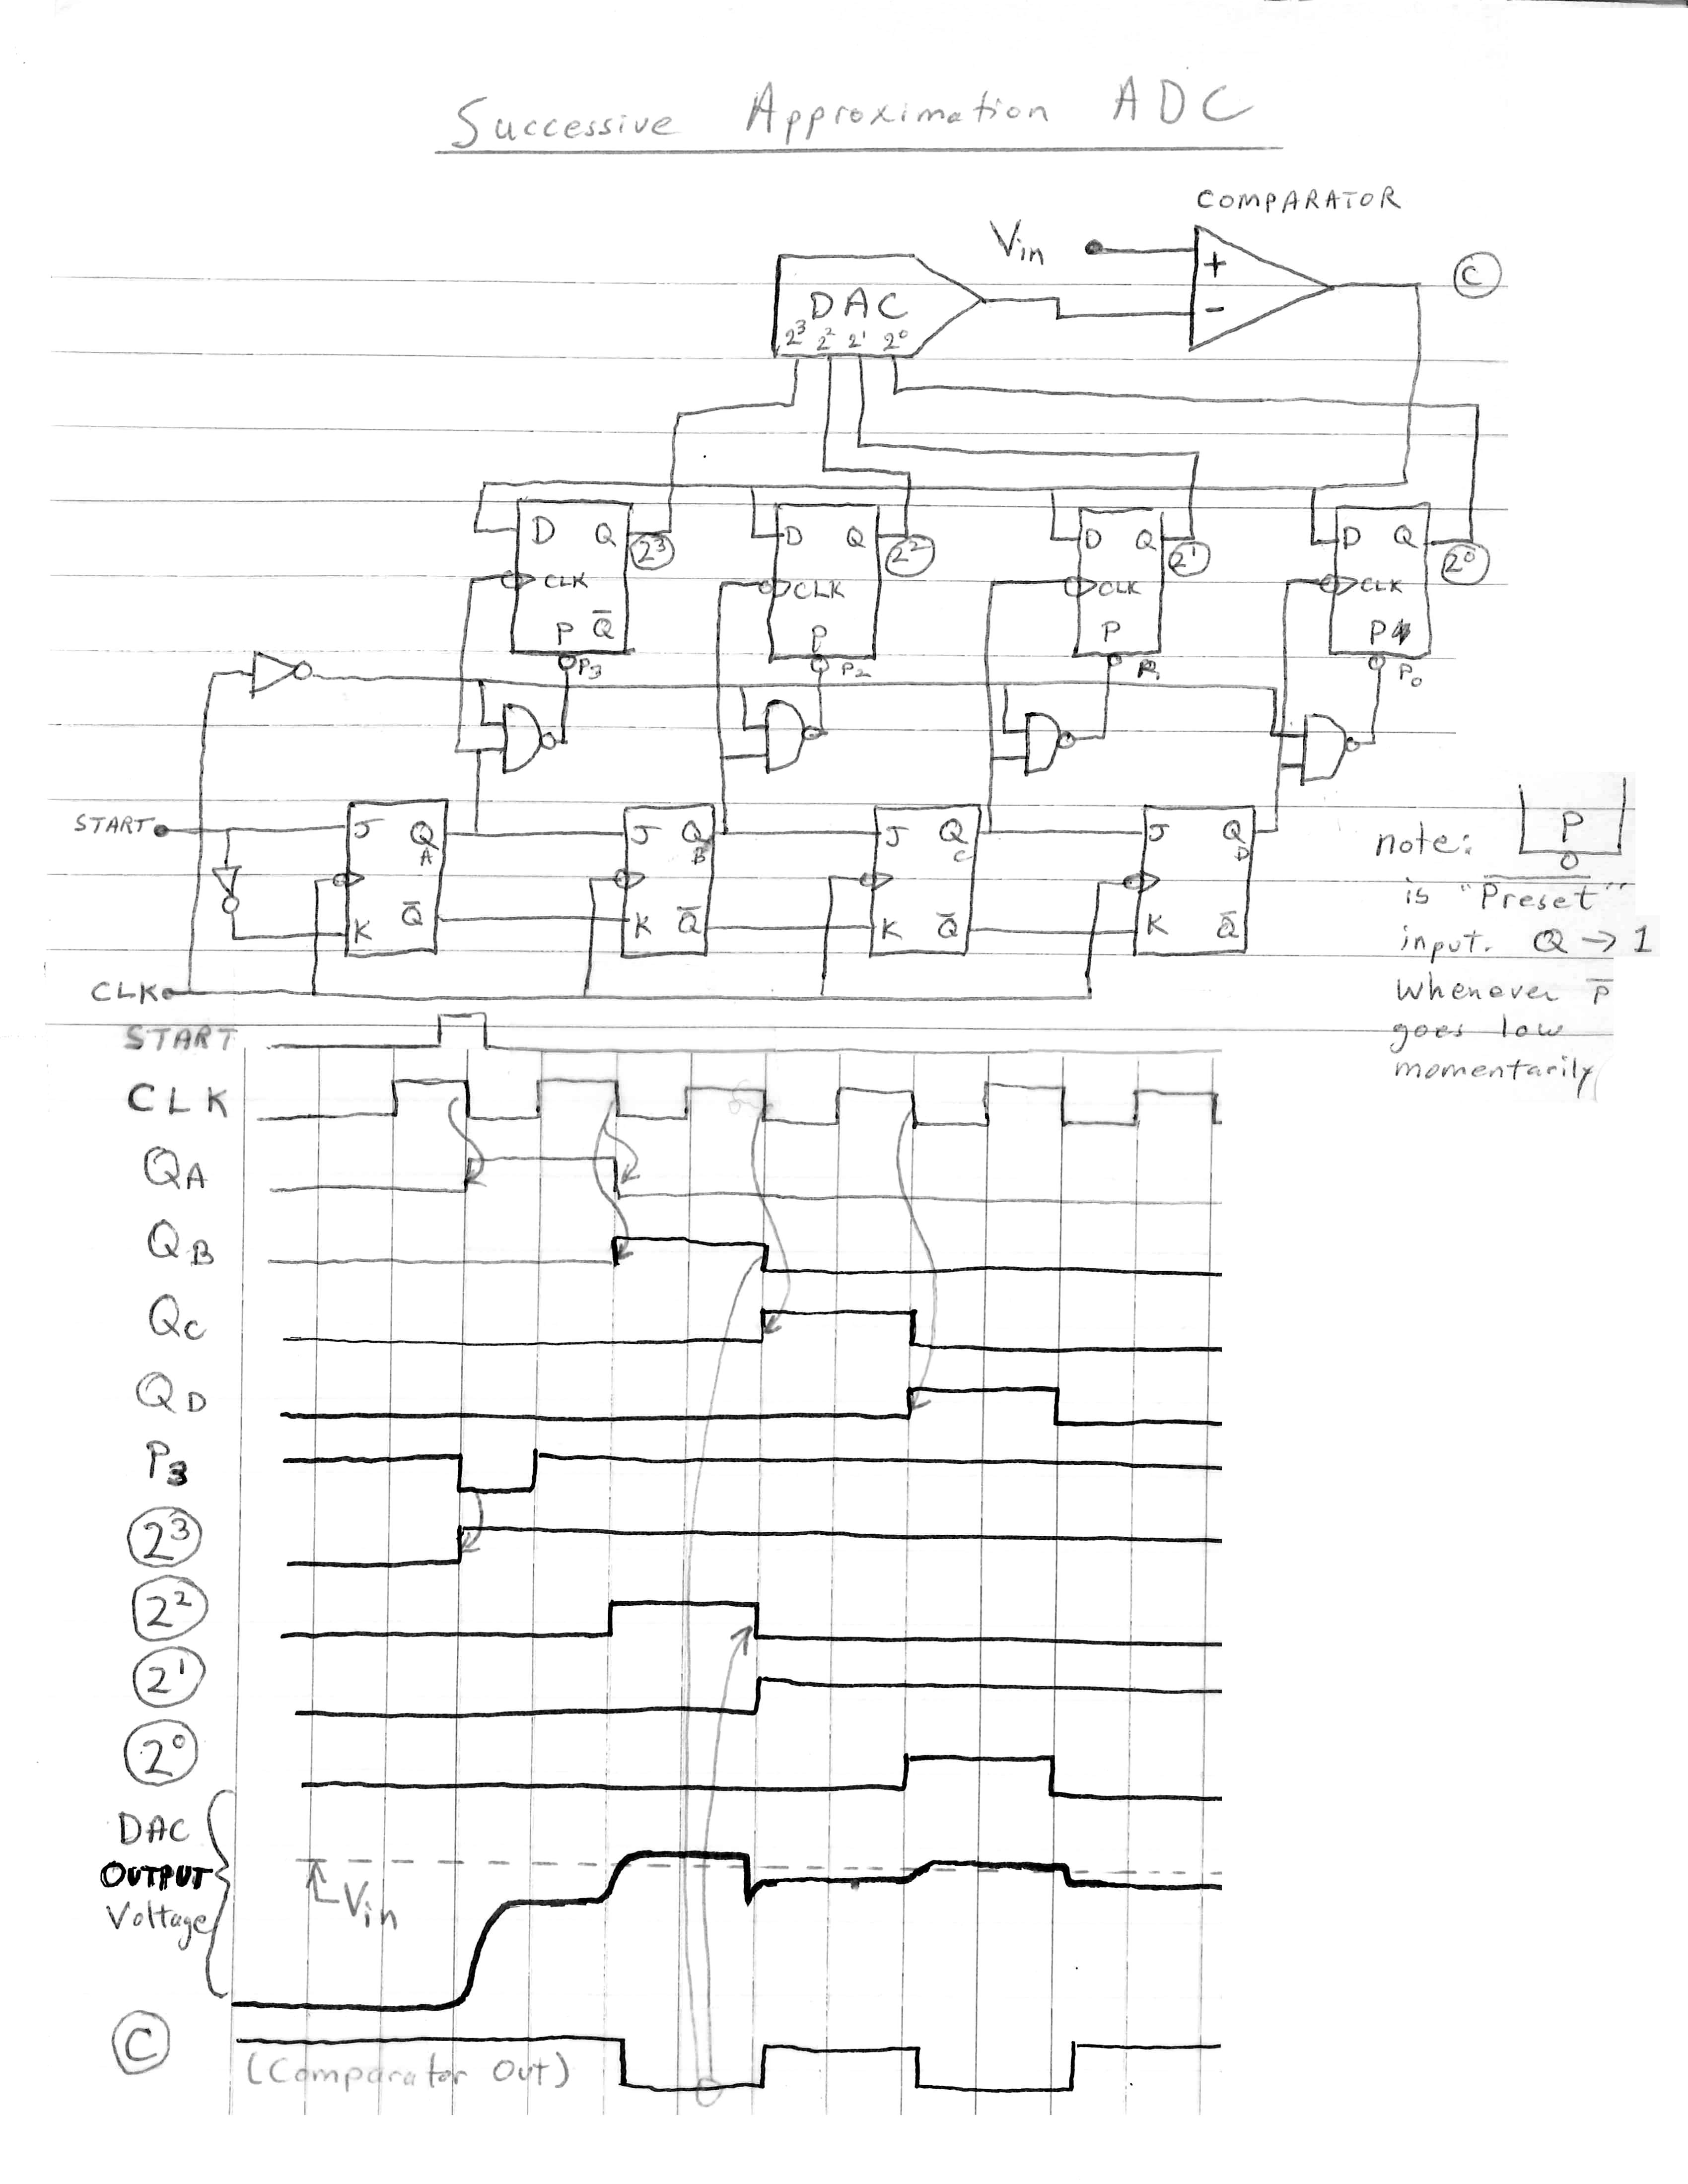 Successive Approximation ADC
COMPARATOR
Vin
+
-
C
DAC
2³ 2² 2¹ 2⁰
D Q 2³
CLK
P Q̅
P₃
D Q 2²
CLK
P
P₂
D Q 2¹
CLK
P
P₁
D Q 2⁰
CLK
P
P₀
START
J Q A
K Q̅
J Q B
K Q̅
J Q C
K Q̅
J Q D
K Q̅
CLK
note: P
is "Preset"
input. Q → 1
Whenever P̅
goes low
momentarily
START
CLK
QA
QB
QC
QD
P3
2³
2²
2¹
2⁰
DAC
OUTPUT
Voltage
Vin
C
(Comparator Out)